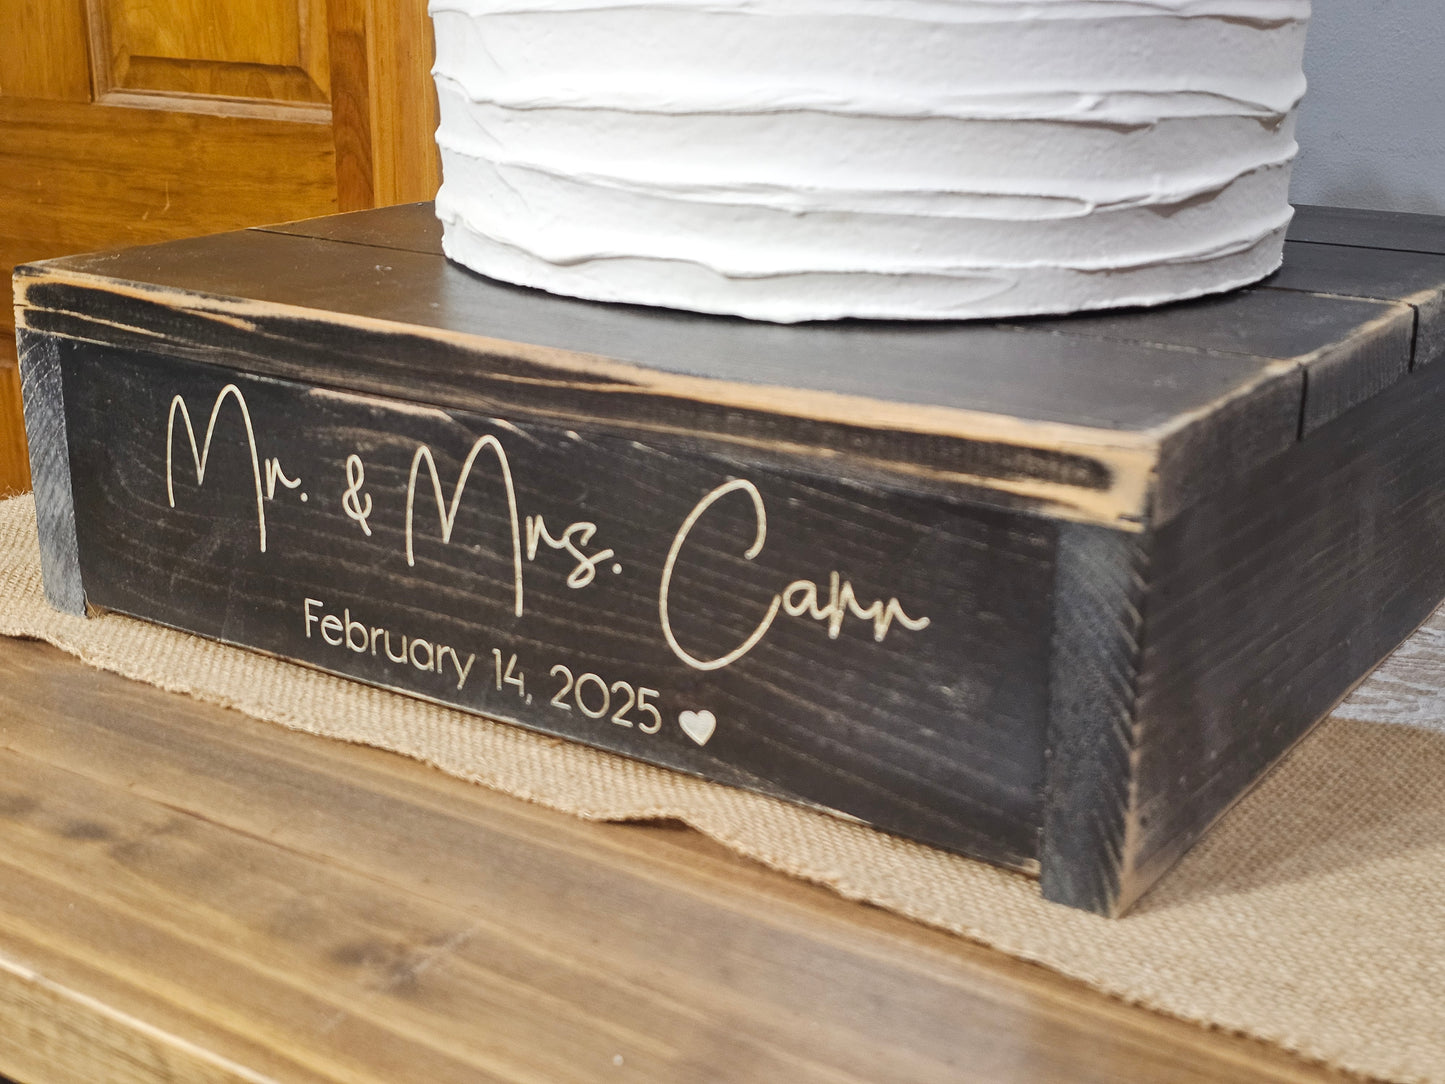 Mr. & Mrs. Carr
February 14, 2025